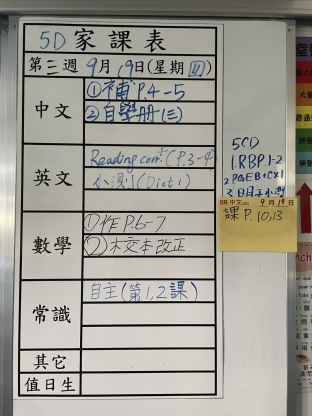 5D 家課表
第三週 9月19日(星期四)
中文
①補P.4-5
②自學册(三)
英文
Reading com.(P.3-4)
小測1(Dict 1)
數學
①作P.6-7
②校本改正
常識
自主(第1,2課)
其它
值日生
5CD
1.RBP.1-2
2.PGEB+CX1
5R 中文 9月19日
課 P.10,13